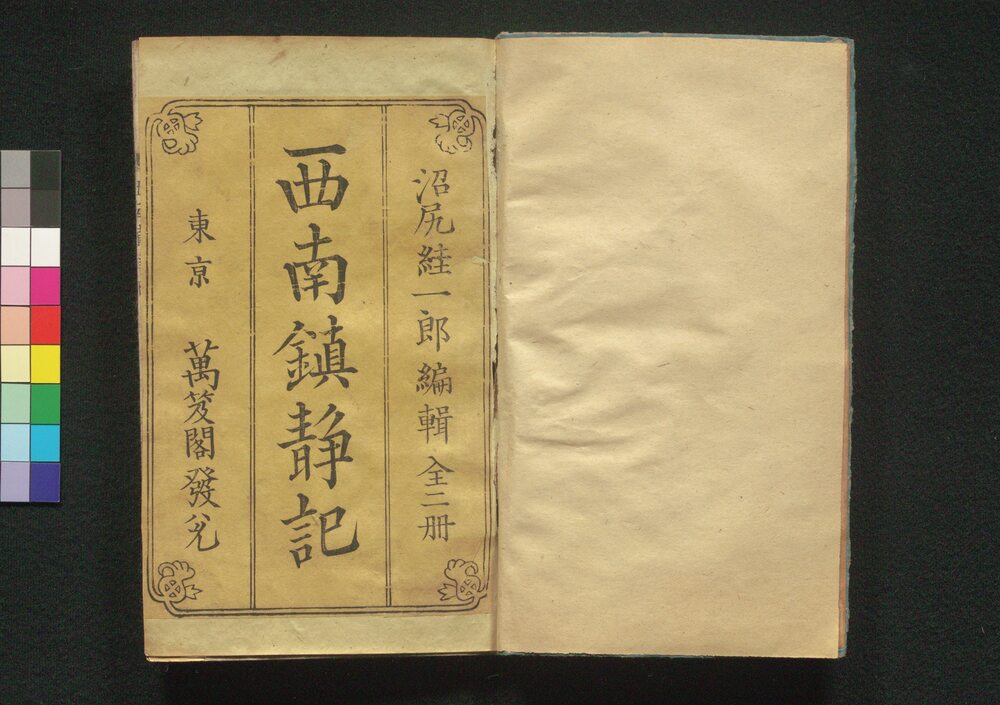 沼尻絓一郎編輯 全二冊
西南鎮静記
東亰 萬笈閣發兌